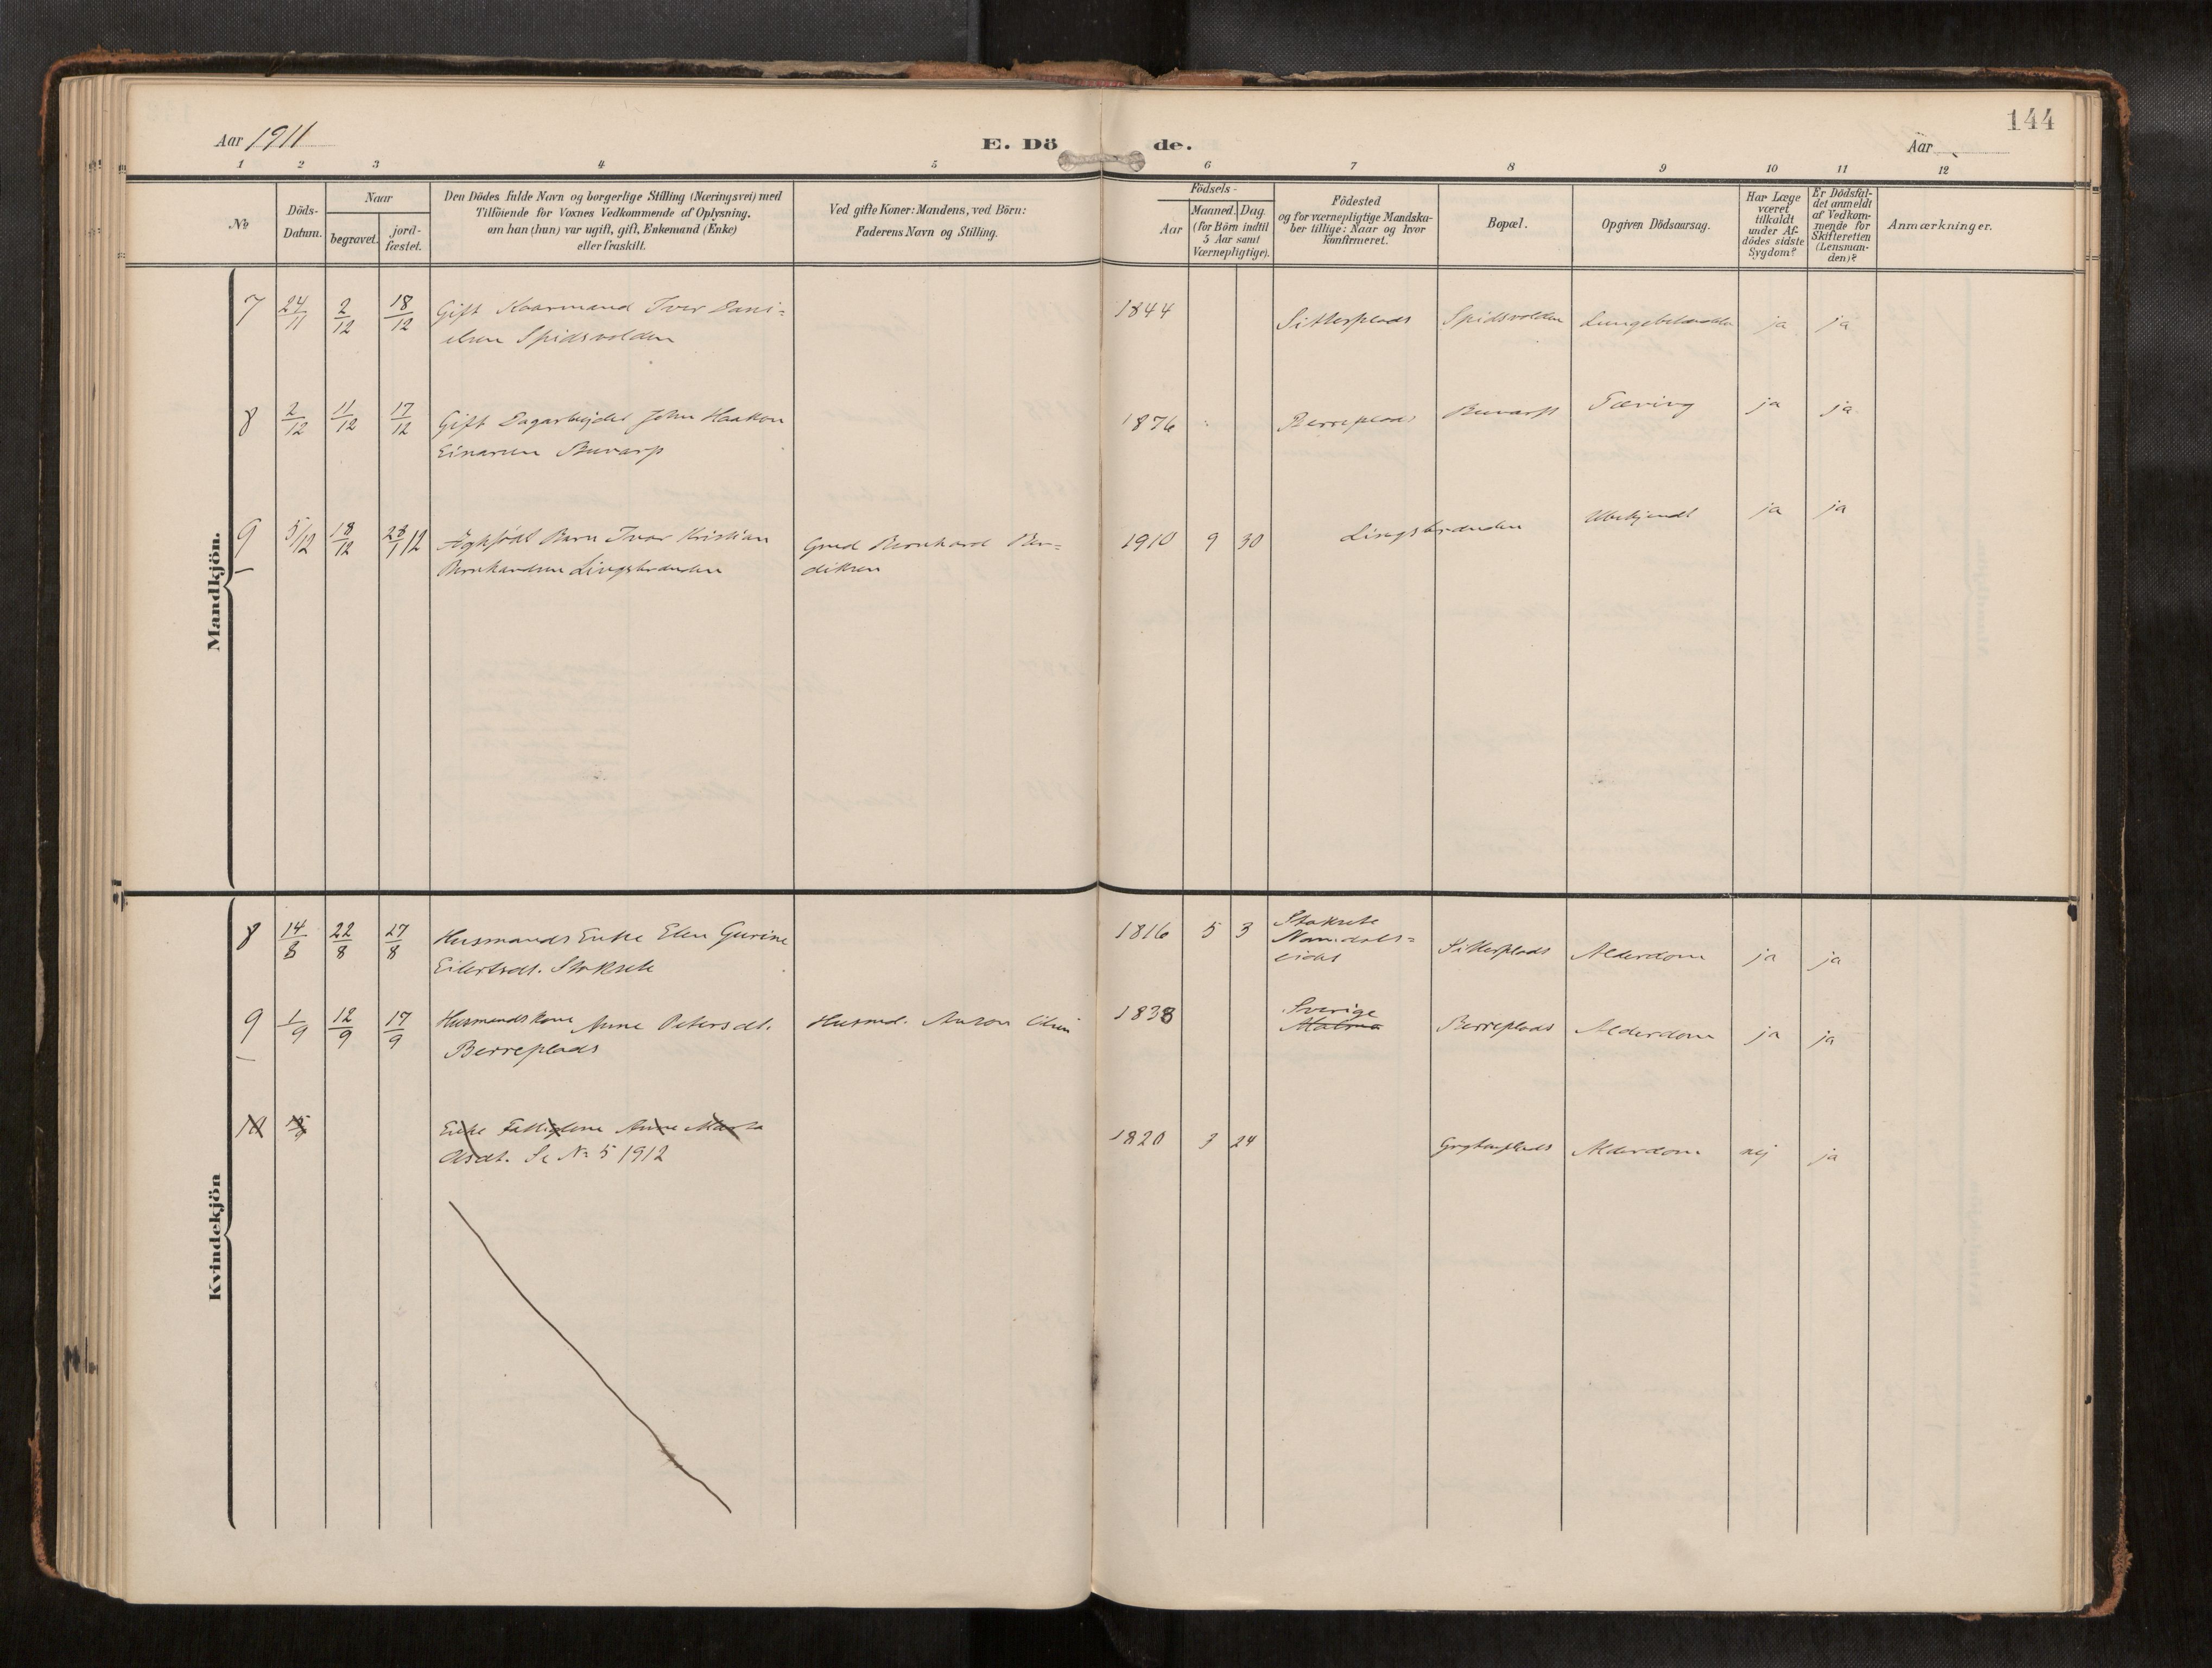 144
Aar 1911
E. Döde.
Aar
1 2 3 4 5 6 7 8 9 10 11 12
No
Döds-Datum.
Naar
begravet.
jord-fæstet.
Den Dödes fulde Navn og borgerlige Stilling (Næringsvei) med
Tilföiende for Voxnes Vedkommende af Oplysning,
om han (hun) var ugift, gift, Enkemand (Enke)
eller fraskilt.
Ved gifte Koner: Mandens, ved Börn:
Faderens Navn og Stilling.
Födsels-
Aar
Maaned. Dag
(for Börn indtil
5 Aar samt
Værnepligtige).
Födested
og for værnepligtige Mandska-
ber tillige: Naar og hvor
konfirmeret.
Bopæl.
Opgiven Dödsaarsag.
Har Læge
været
tilkaldt
under Af-
dödes sidste
Sygdom?
Er Dödsfal-
det anmeldt
af Vedkom-
mende for
Skifteretten
(Lensman-
den)?
Anmærkninger.
Mandkjön.
7 24/11 2/12 18/12 Gift Kaarmand Iver Dani-
elsen Spidsvolden
1844 Sitterplads Spidsvolden ja ja
8 2/12 11/12 17/12 Gift Dagarbejder John Haakon
Einarsen Buvarp
1876 Berreplads Buvarp Tæring ja ja
9 5/12 18/12 28/1 12 Ægtefødt Barn Ivar Kristian
Bernhardsen Lingsbranden
Gmd Bernhard Ben-
diksen
1910 9 30 Lingsbranden Ubekjendt ja ja
Kvindekjön
8 14/8 22/8 27/8 Husmands Enke Elen Gurine
Eilertsdt. Staksete
1816 5 3 Staksete
Namdals-
eidet
Sitterplads Alderdom ja ja
9 1/9 12/9 17/9 Husmandskone Anne Petersdt.
Berreplads
Husmd. Anton
1838 Sverige
Malma
Berreplads Alderdom ja ja
10 Enke Fattiglem Anne Marta
Olsdt. Se No 5 1912
1820 3 24 Alderdom nej ja